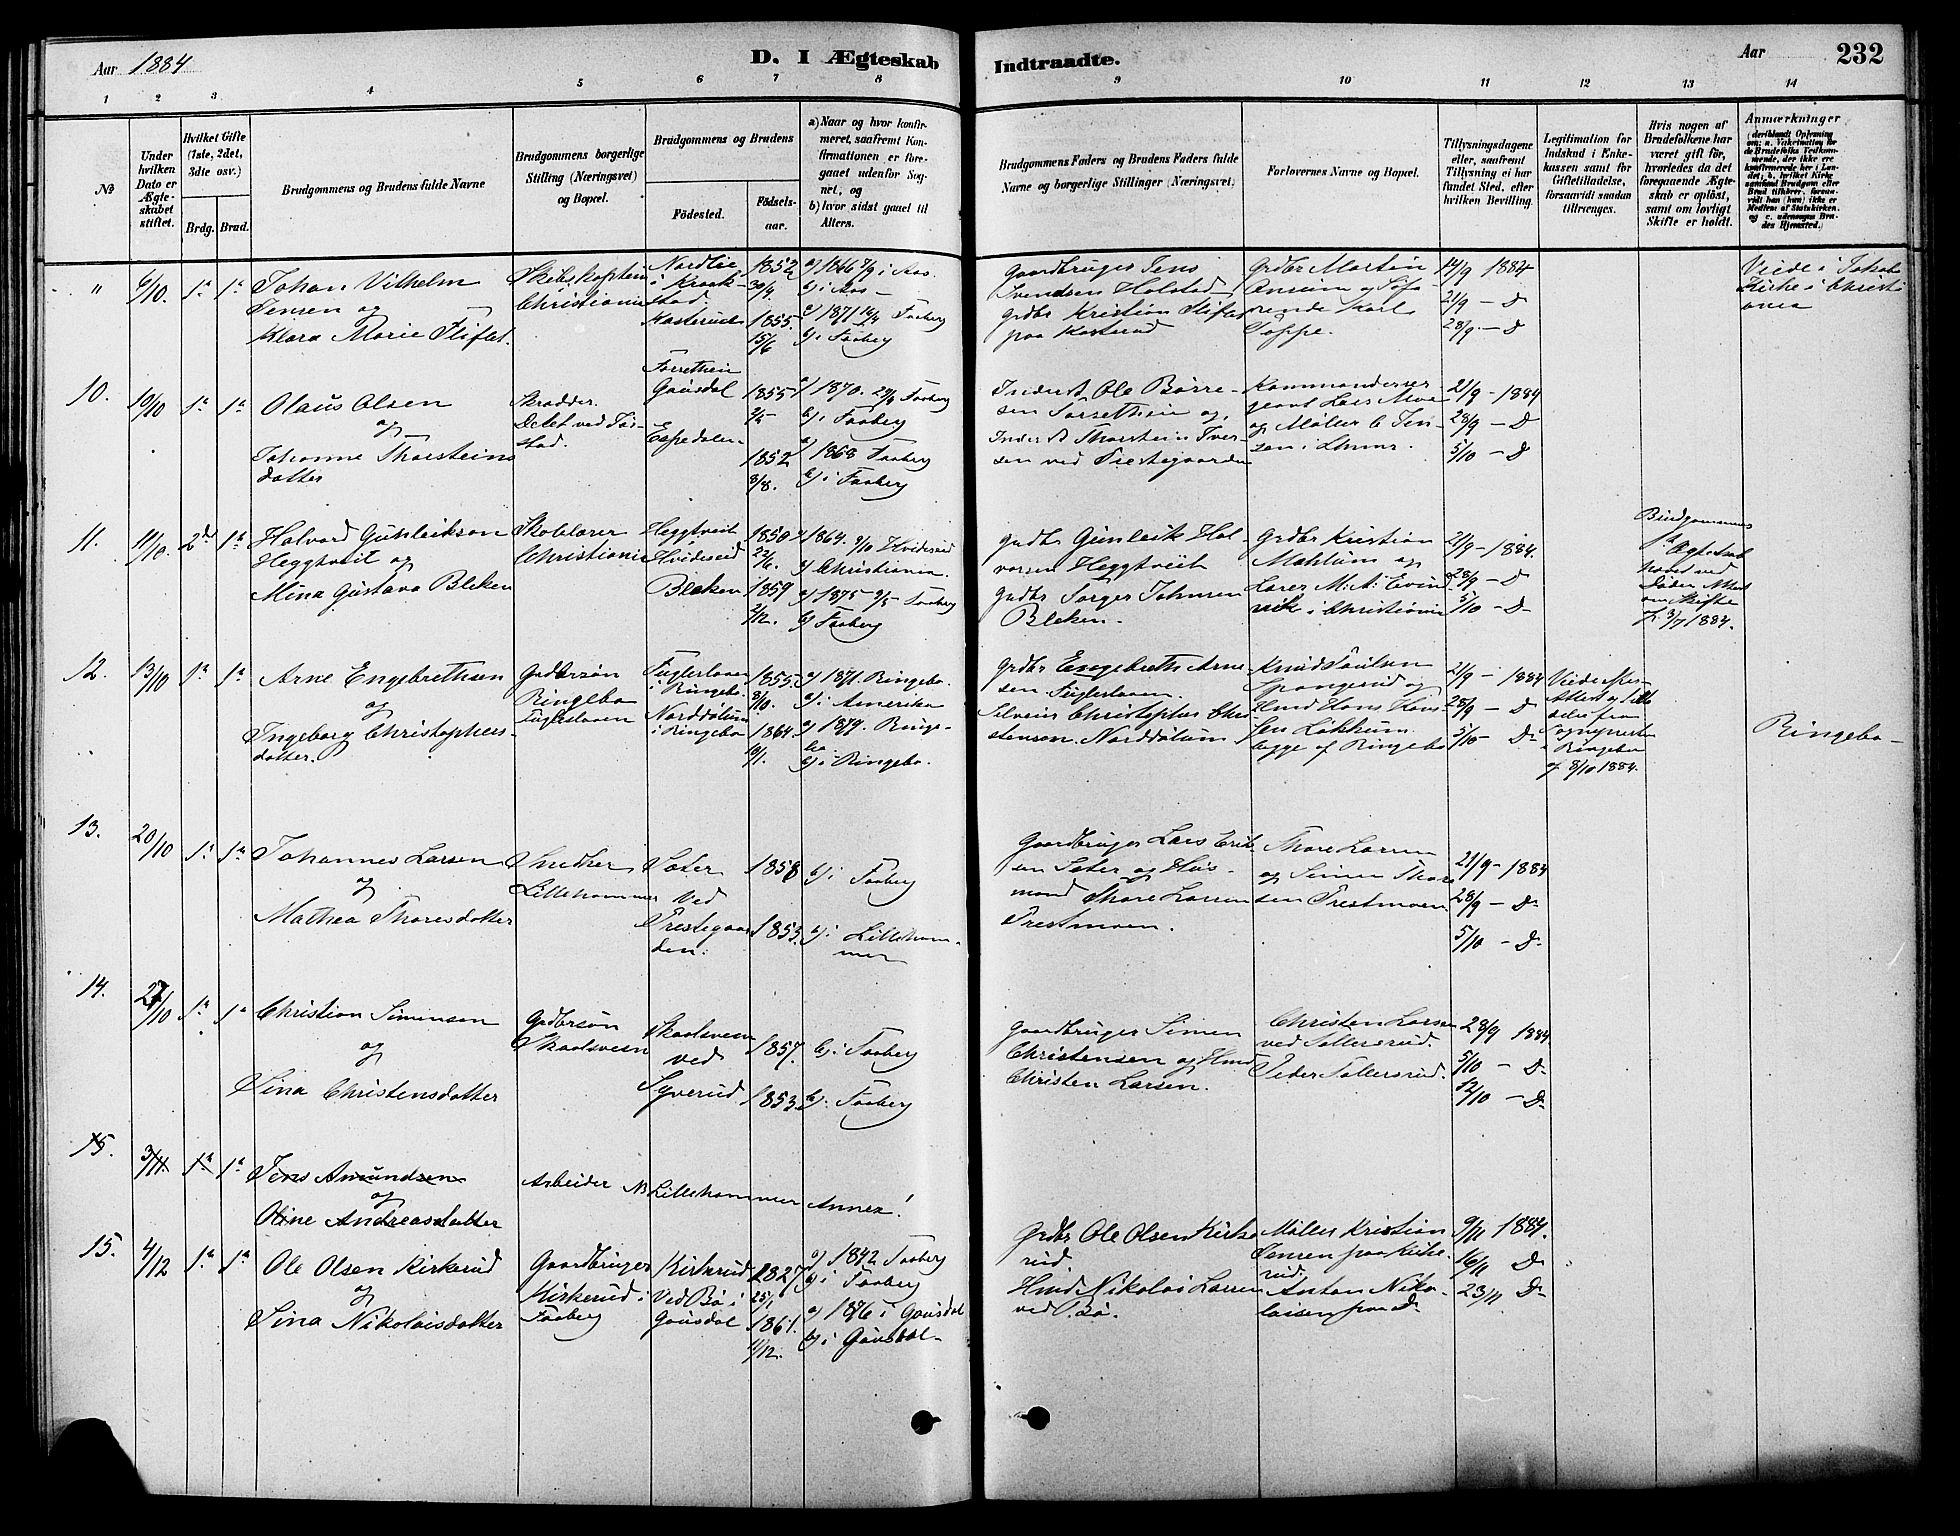 Aar 1884
D. I Ægteskab Indtraadte.
Aar
232
1 2 3 4 5 6 7 8 9 10 11 12 13 14
№
Under hvilken Dato er Ægteskabet stiftet.
Hvilket Gifte (1ste, 2det, 3die osv.)
Brdg. Brud.
Brudgommens og Brudens fulde Navne
Brudgommens borgerlige Stilling (Næringsvei) og Bopæl.
Brudgommens og Brudens
Fødested.
Fødselsaar.
a) Naar og hvor konfirmeret, saafremt Konfirmationen er foregaaet udenfor Sognet, og
b) hvor sidst gaaet til Alters.
Brudgommens Faders og Brudens Faders fulde Navne og borgerlige Stillinger (Næringsvei)
Forlovernes Navne og Bopæl.
Tillysningsdagene eller, saafremt Tillysning ei har fundet Sted, efter hvilken Bevilling.
Legitimation for Indskud i Enkekassen samt for Giftetilladelse, forsaavidt saadan tiltrænges.
Hvis nogen af Brudefolkene har været gift før, hvorledes da det foregaaende Ægteskab er opløst, samt om lovligt Skifte er holdt.
Anmærkninger
"
6/10.
1ste 1ste
Johan Vilhelm
Jensen og
Klara Marie Fliflet.
Skibskaptein
Christiania
Nordlie
i Kraakstad.
Kasterud
1852
30/4.
1855.
15/6
a) 1866 7/9 i Aas.
b) i Aas –
a) 1871 14/4 Faaberg
b) i Faaberg
Gaardbruger Jens
Svendsen Holstad
Grdbr Kristian Fliflet
paa Kasterud
Grdbr Martin
14/9 1884
21/9 – D
28/9 – D
Viede i Jakobs
Kirke i Christiania
10.
10/10
Olaus Olsen
og
Johanne Thorsteinsdatter
Skrædder.
Gausdal
Espedalen
1855
1852
3/8.
a) 1870. Faaberg
b) i Faaberg
a) 1868 Faaberg
b) i Faaberg
Inderst Ole Børresen
og
Inderst Thorstein Iversen
ved Prestegaarden
og Møller C Jensen
21/9 – 1884
28/9 – D
5/10 – D
11.
11/10.
2den 1ste
Halvard Gunleikson
Heggtveit og
Mina Gustava Bleken
Skolelærer
Christiania
Heggtveit
Hvideseid
Bleken
1850
22/6.
1859
2/12.
a) 1864. 9/10 Hvideseid
b) Christiania.
a) 1875 Faaberg
b) Faaberg
Grdbr Gunleik Halvorsen
Heggtveit
Grdbr Torger Johnsen
Bleken.
Grdbr Kristian
Mæhlum og
Lærer
i Christiania
21/9 – 1884.
28/9 – D
5/10 – D
Brudgommens
1ste Ægteskab
hævet ved
Døden Attest
om Skifte
3/7 1884.
12.
13/10
Arne Engebrethsen
og
Ingeborg Christophersdatter.
Grdbrsøn
Ringebo
Fugleslaaen
i Ringebo.
Norddølum
i Ringebo
1855
8/10.
1864.
a) 1871. Ringebo.
b) i Amerika
a) 1879. Ringebo
b) i Ringebo.
Grdbr Engebreth Arnesen
Fugleslaaen.
Christopher Christensen
Norddølum
Knud Paulsen
Spangerud og
Hmd Hans Hansen
Løkkum
begge af Ringebo
21/9 – 1884
28/9 – D
5/10 – D
Attest
fra
Sognepresten
i Ringebo
af 8/10 1884.
Ringebo –
13.
20/10
Johannes Larsen
og
Mathea Thoresdatter
Snedker
Lillehammer
Sæter
Ved
Prestegaarden.
1858
1853.
b) i Faaberg
b) i Lillehammer
Gaardbruger Lars Eriksen
Seter og Husmand
Thore Larsen
Prestmoen.
Thore Larsen
og Simen Thoresen
Prestmoen
21/9 – 1884
28/9 – D
5/10 – D
14.
27/10
Christian Simensen
og
Sina Christensdatter
Grdbrsøn
Skaalsveen
Skaalsveen
ved
Syverud
1857.
1853.
b) i Faaberg
b) i Faaberg
Gaardbruger Simen
Christensen og Hmd
Christen Larsen.
Christen Larsen
ved Tollersrud.
Peder Tollersrud.
28/9 1884
5/10 – D
12/10 – D
15.
3/11.
Jens Amundsen
og
Oline Andreasdatter
Arbeider NB Lillehammer Annex!
15.
4/12
Ole Olsen Kirkerud
og
Sina Nikolaisdatter
Gaardbruger
Kirkerud i
Faaberg
Kirkerud
Ved Bø i
Gausdal
1827
25/1
1861.
11/12.
a) 1842 Faaberg
b) i Faaberg
a) 1876 i Gausdal
b) i Gausdal –
Grdbr Ole Olsen Kirkerud.
Hmd Nikolai Larsen
ved Bø.
Møller Kristian
Jensen paa Kirkerud.
Anton Nikolaisen
9/11 1884.
16/11 D
23/11 D